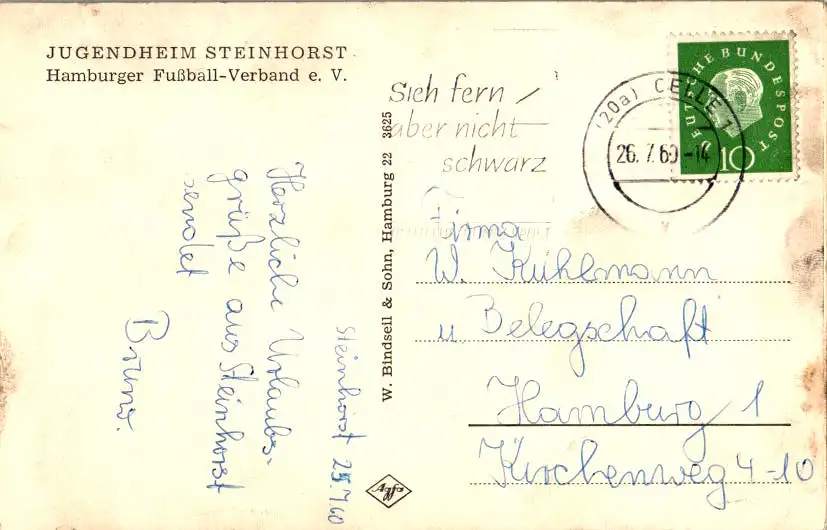 JUGENDHEIM STEINHORST
Hamburger Fußball-Verband e. V.
Steinhorst 25.7.60
Herzliche Urlaubs-
grüße aus Steinhorst
sendet
Bruno.
W. Bindseil & Sohn, Hamburg 22 3625
Sieh fern
aber nicht
schwarz
(20a) CELLE 1
26.7.60-14
DEUTSCHE BUNDESPOST
10
Firma
W. Kuhlmann
u. Belegschaft
Hamburg 1
Kirchenweg 4-10
Agfa